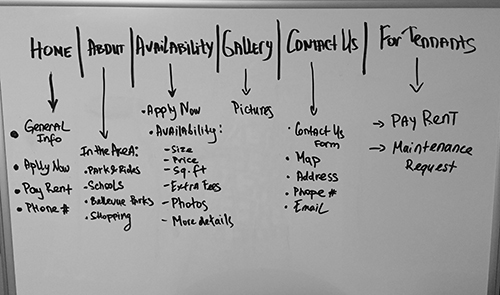 HOME | ABOUT | AVAILABILITY | GALLERY | CONTACT US | FOR TENNANTS
• GENERAL INFO
• Apply Now
• Pay Rent
• Phone #
IN the AREA:
• Park & Rides
• Schools
• Bellevue Parks
• Shopping
• Apply Now
• Availability:
- Size
- Price
- Sq.ft
- Extra Fees
- Photos
- More details
Pictures
• Contact Us Form
• Map
• Address
• Phone #
• Email
→ PAY RENT
→ Maintenance Request